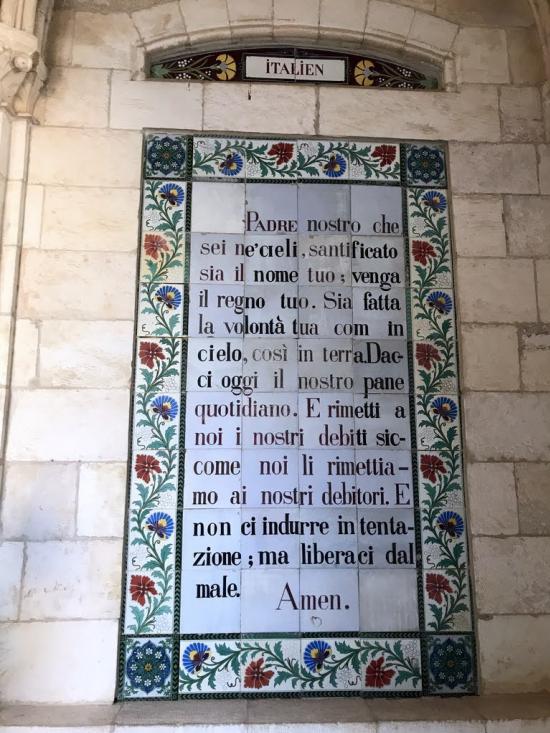 iTALiEN
PADRE nostro che
sei ne'cieli, santificato
sia il nome tuo; venga
il regno tuo. Sia fatta
la volontà tua com in
cielo, così in terra.Dac-
ci oggi il nostro pane
quotidiano. E rimetti a
noi i nostri debiti sic-
come noi li rimettia-
mo ai nostri debitori. E
non ci indurre in tenta-
zione; ma liberaci dal
male. Amen.